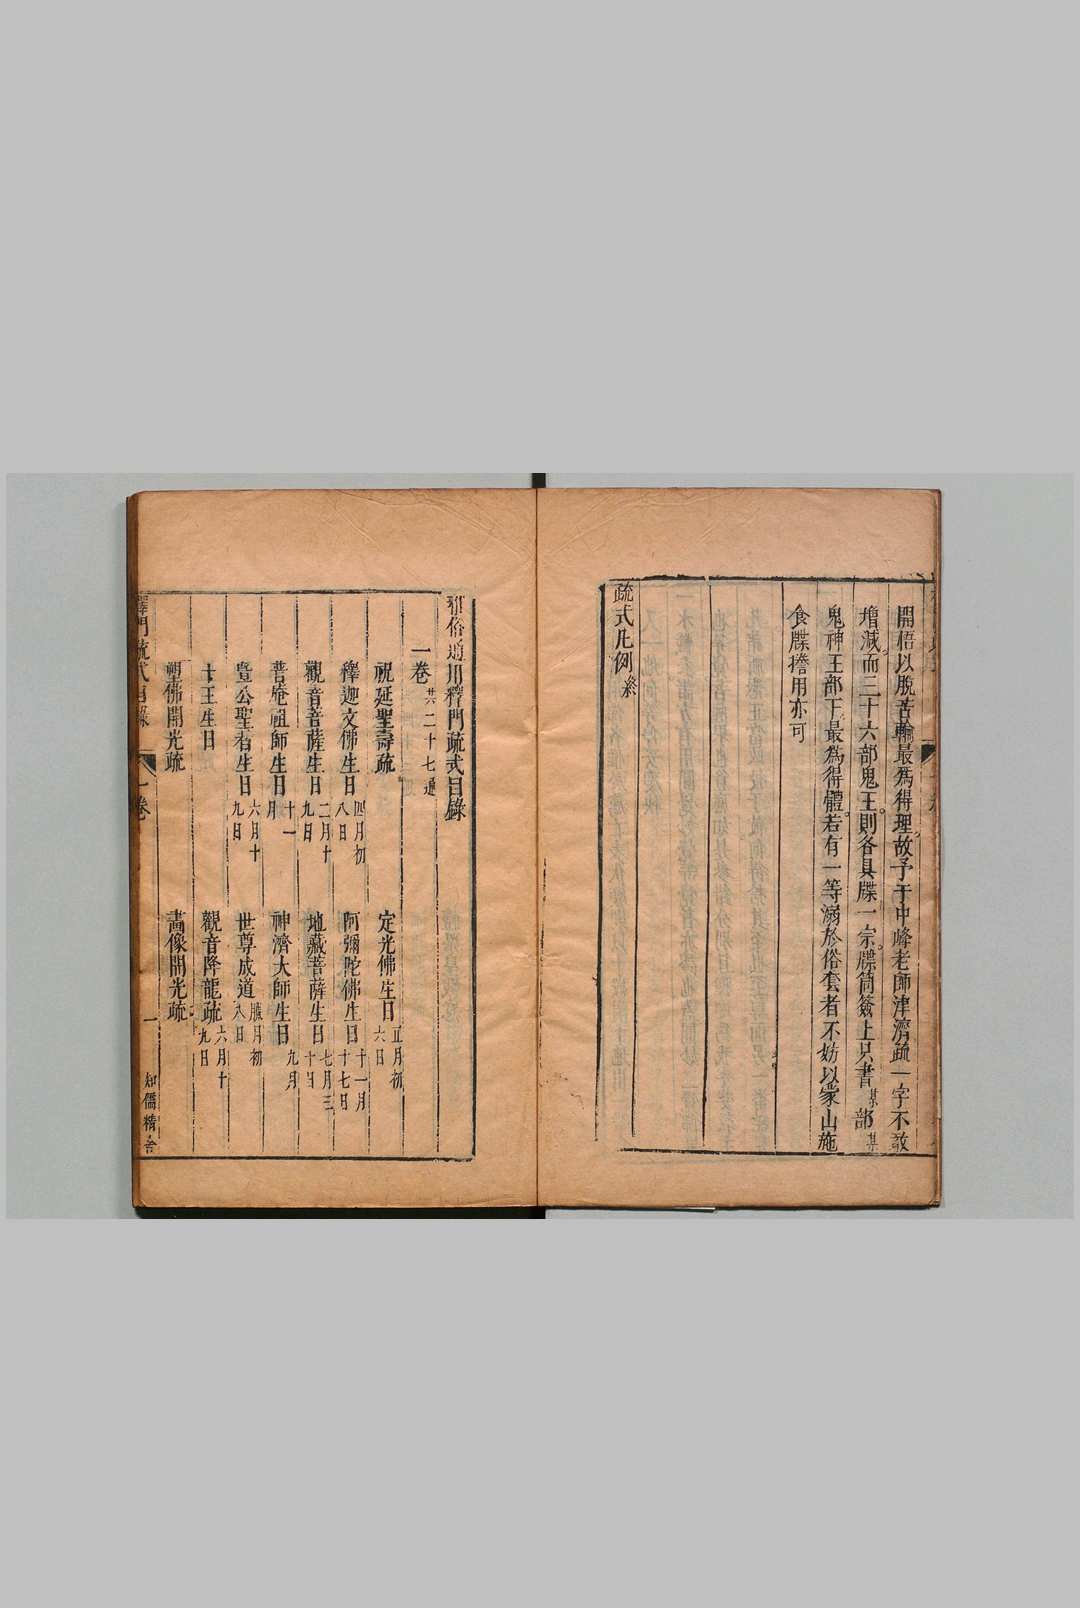 開悟以脫苦輪最爲得理故予于中峰老師津濟疏一字不敢
增減而三十六部鬼王則各具牒一宗牒筒簽上只書某部某
鬼神王部下最爲得體若有一等溺於俗套者不妨以蒙山施
食牒擔用亦可
疏式凡例終
雅俗通用釋門疏式目錄
一卷 共二十七通
祝延聖壽疏 定光佛生日 正月初六日
釋迦文佛生日 四月初八日 阿彌陀佛生日 十一月十七日
觀音菩薩生日 二月十九日 地藏菩薩生日 七月三十日
普庵祖師生日 十一月 神濟大師生日 九月
壹公聖者生日 六月十九日 世尊成道 臘月初八日
十王生日 觀音降龍疏 六月十九日
塑佛開光疏 畵像開光疏
釋門疏式目錄 一卷 一 知儒精舍